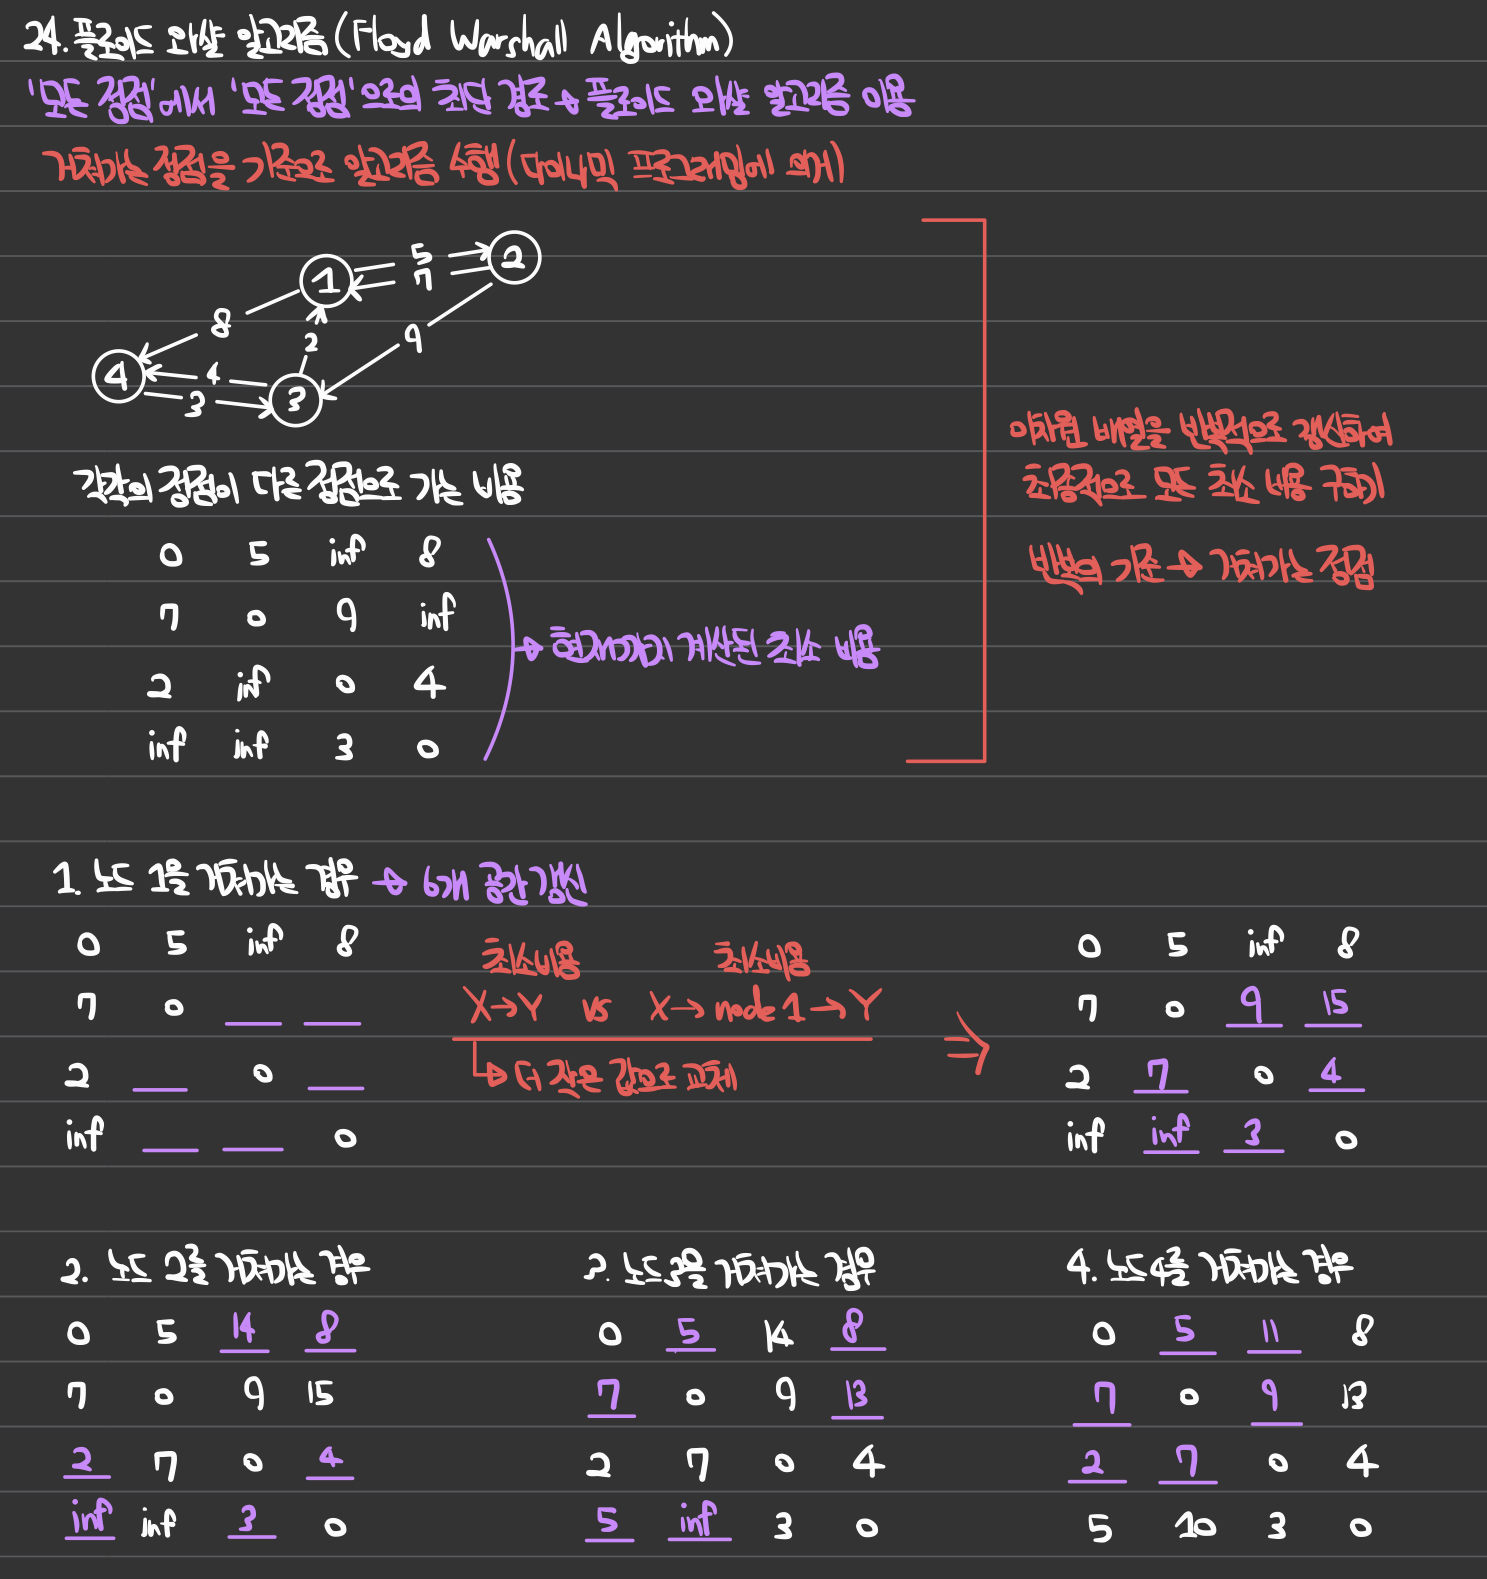 24. 플로이드 와샬 알고리즘 (Floyd Warshall Algorithm)
'모든 정점'에서 '모든 정점'으로의 최단 경로 → 플로이드 와샬 알고리즘 이용
거쳐가는 정점을 기준으로 알고리즘 수행 (다이나믹 프로그래밍에 의거)
5 2
1 7
8
2 9
4 4
3 3
각각의 정점이 다른 정점으로 가는 비용
0 5 inf 8
7 0 9 inf
2 inf 0 4
inf inf 3 0
→ 현재까지 계산된 최소 비용
이차원 배열을 반복적으로 갱신하여
최종적으로 모든 최소 비용 구하기
반복의 기준 → 거쳐가는 정점
1. 노드 1을 거쳐가는 경우 → 6개 공간 갱신
0 5 inf 8
7 0 __ __
2 __ 0 __
inf __ __ 0
최소비용 최소비용
X→Y vs X→node 1→Y
→ 더 작은 값으로 교체
⇒
0 5 inf 8
7 0 9 15
2 7 0 4
inf inf 3 0
2. 노드 2를 거쳐가는 경우
0 5 14 8
7 0 9 15
2 7 0 4
inf inf 3 0
3. 노드3을 거쳐가는 경우
0 5 14 8
7 0 9 13
2 7 0 4
5 inf 3 0
4. 노드4를 거쳐가는 경우
0 5 11 8
7 0 9 13
2 7 0 4
5 10 3 0